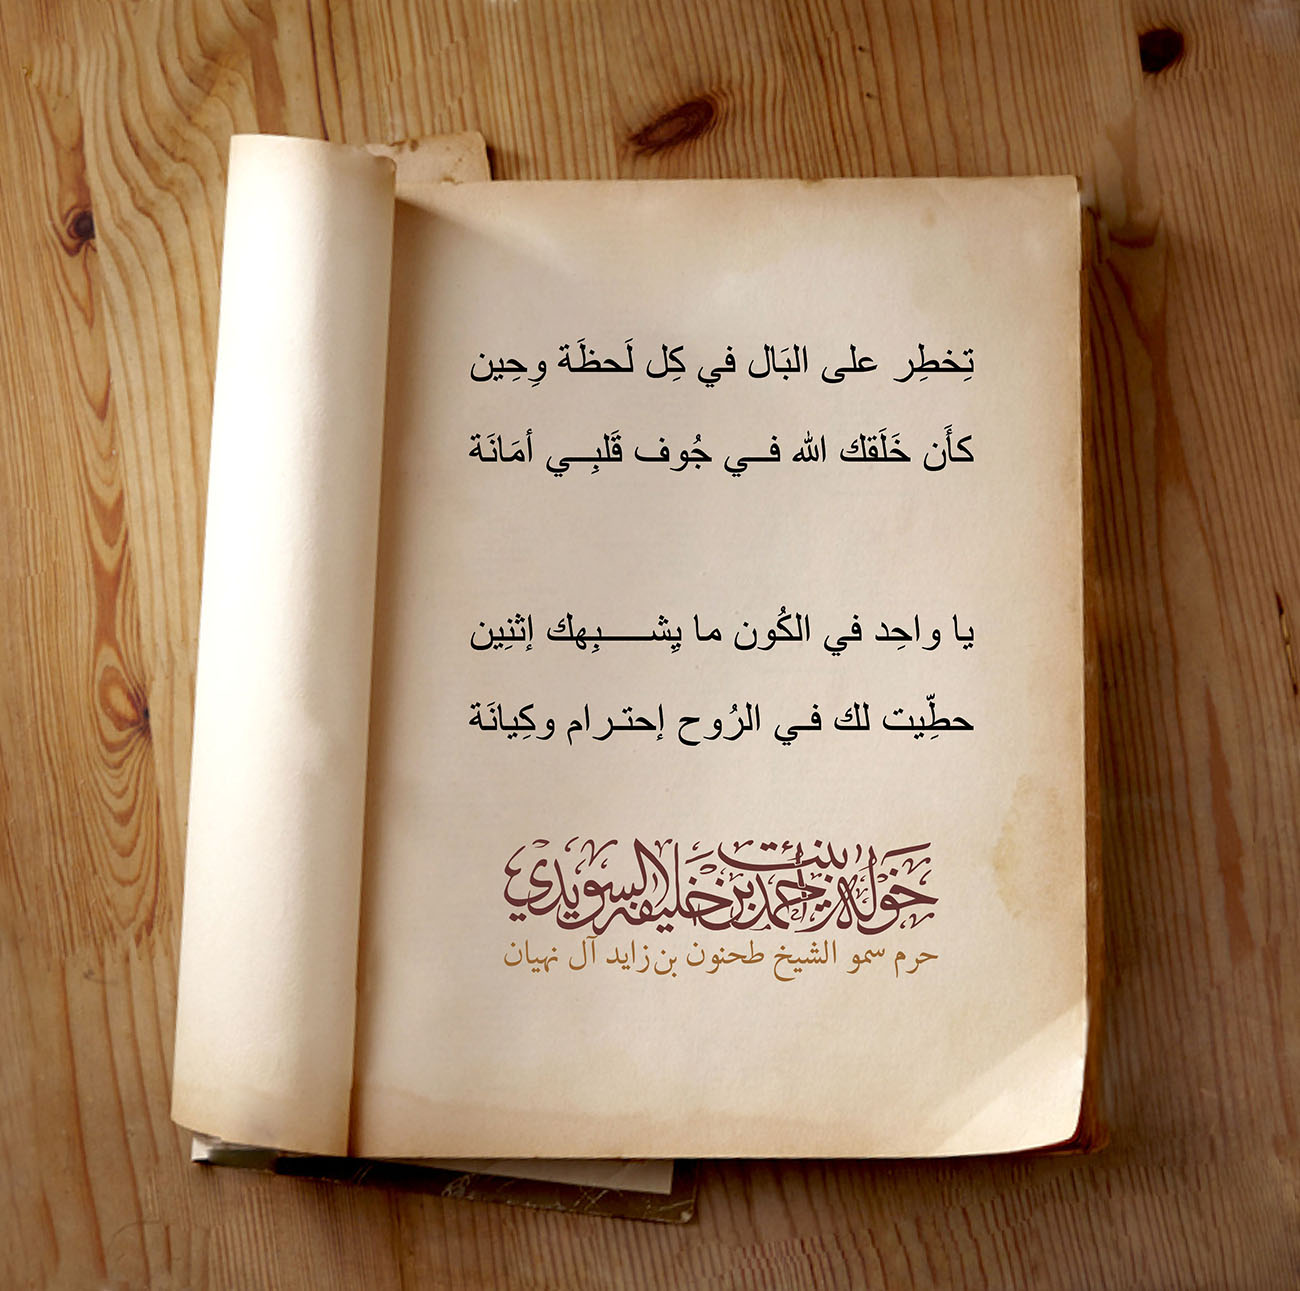 تِخطِر على البَال في كِل لَحظَة وِحِين
كأَن خَلَقك الله فـــي جُوف قَلبِـــي أمَانَة
يا واحِد في الكُون ما يِشـــــبِهك إثنِين
حطِّيت لك فـي الرُوح إحتـرام وكِيانَة
خوله بنت أحمد بن خليفه السويدي
حرم سمو الشيخ طحنون بن زايد آل نهيان